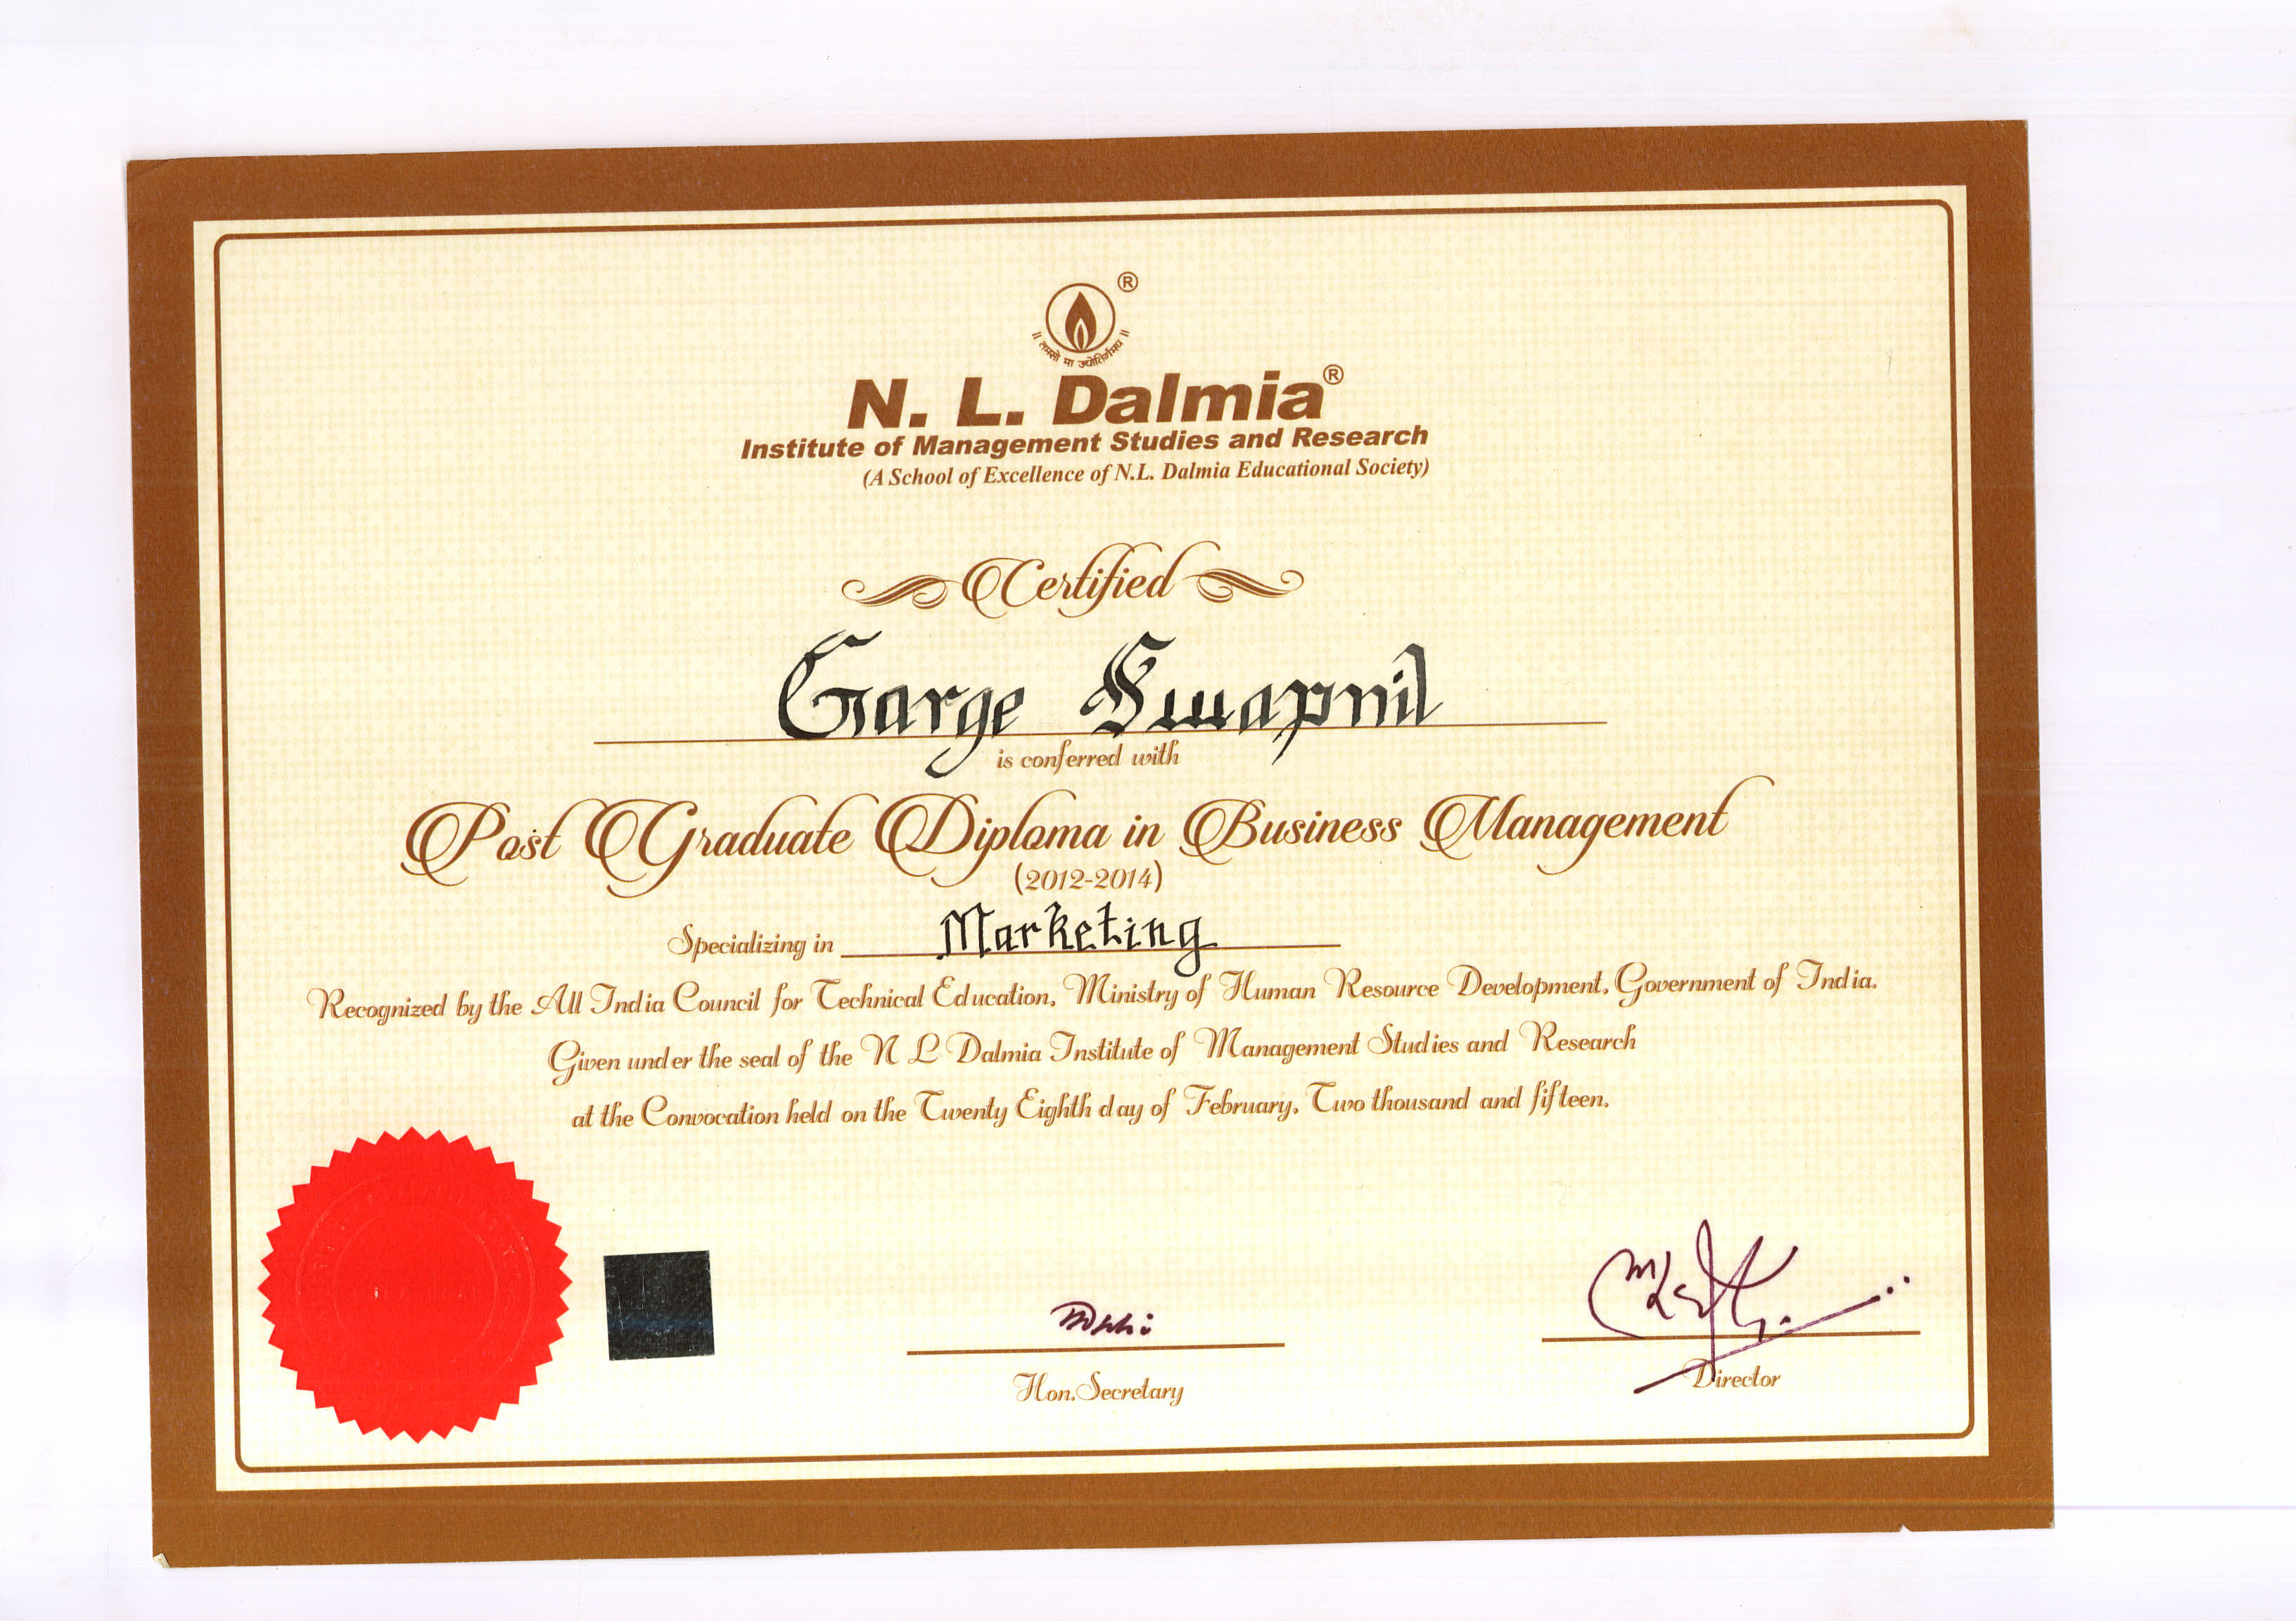 ®
॥ तमसो मा ज्योतिर्गमय ॥
N. L. Dalmia®
Institute of Management Studies and Research
(A School of Excellence of N.L. Dalmia Educational Society)
Certified
Garge Swapnil
is conferred with
Post Graduate Diploma in Business Management
(2012-2014)
Specializing in Marketing
Recognized by the All India Council for Technical Education, Ministry of Human Resource Development, Government of India.
Given under the seal of the N L Dalmia Institute of Management Studies and Research
at the Convocation held on the Twenty Eighth day of February, Two thousand and fifteen.
Hon.Secretary
Director